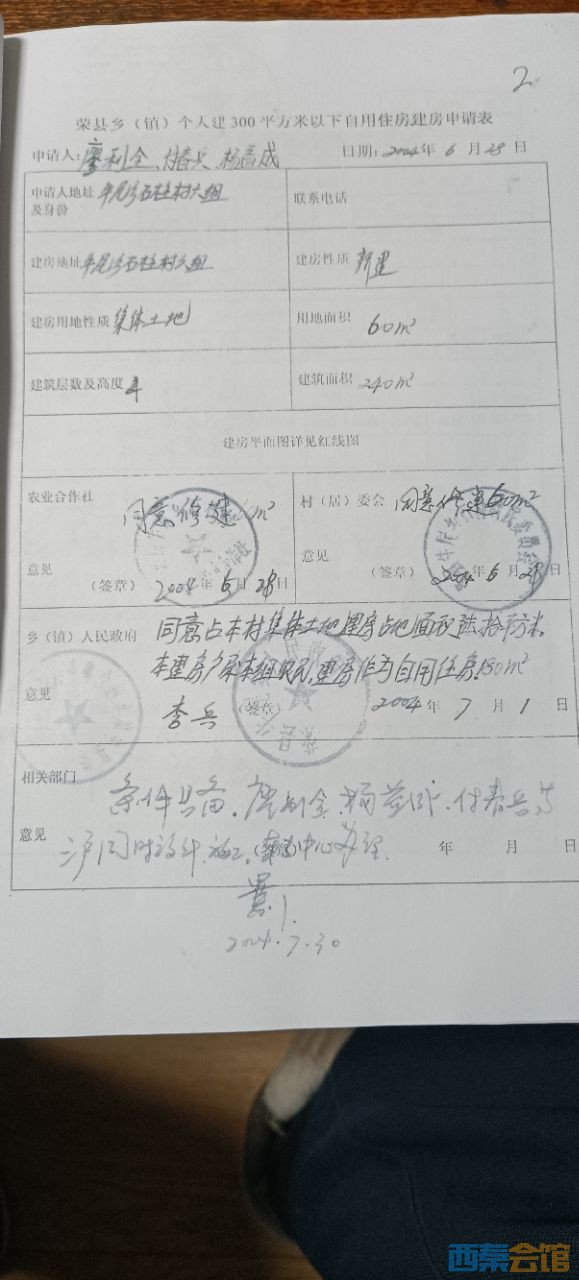 2
荣县乡（镇）个人建300平方米以下自用住房建房申请表
申请人：廖利全、付春兵、杨益成 日期：2004年6月28日
申请人地址及身份 牟尾乡石柱村六组 联系电话
建房地址 牟尾乡石柱村六组 建房性质 新建
建房用地性质 集体土地 用地面积 60m²
建筑层数及高度 4 建筑面积 240m²
建房平面图详见红线图
农业合作社 村（居）委会
同意修建 m² 同意修建60m²
意见 意见
（签章） 2004年6月28日 （签章） 2004年6月28日
乡（镇）人民政府 同意占本村集体土地建房占地面积陆拾平方米。
本建房户系本组农民，建房作为自用住房180m²
意见 李兵 （签章） 2004年7月1日
相关部门 条件具备。廖利全、杨益成、付春兵等
意见 三户同时设计、施工。（签章）中心办理。 年 月 日
2004.7.30
西秦会馆